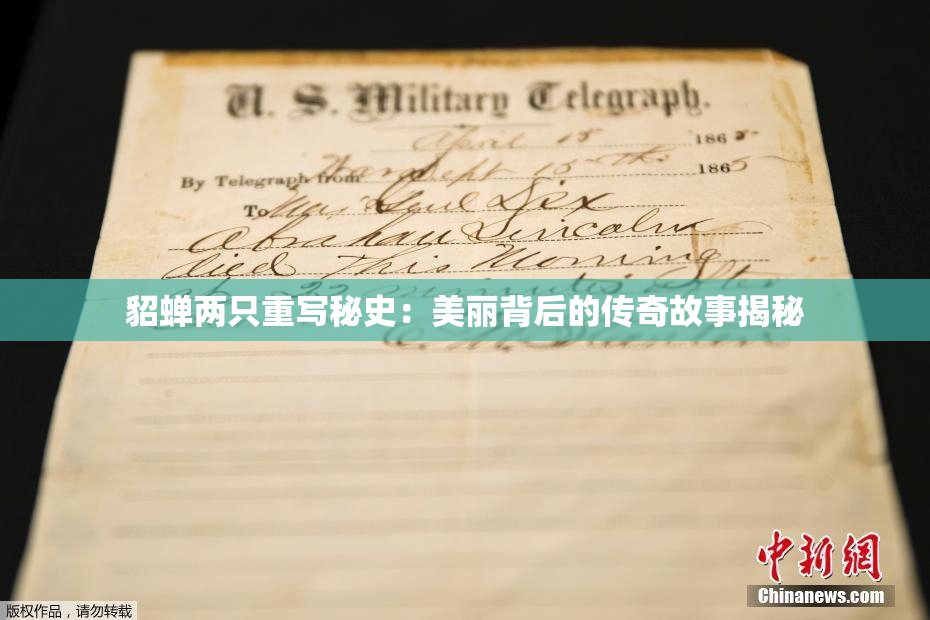 U. S. Military Telegraph.
April 15 1865
By Telegraph from War Dept 15th 1865
To Maj Genl Dix
Abraham Lincoln
died This Morning
at 22 minutes after
貂蝉两只重写秘史：美丽背后的传奇故事揭秘
E. M. Stanton
中新网
Chinanews.com
版权作品，请勿转载